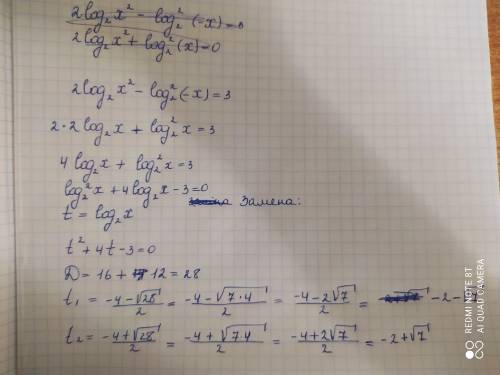 2log₂x² - log₂²(-x)=0
2log₂x² + log₂²(x)=0
2log₂x² - log₂²(-x)=3
2·2log₂x + log₂²x=3
4log₂x + log₂²x=3
log₂²x+4log₂x-3=0
t=log₂x Замена:
t²+4t-3=0
D=16+12=28
t₁ = (-4-√28)/2 = (-4-√(7·4))/2 = (-4-2√7)/2 = -2-
t₂ = (-4+√28)/2 = (-4+√(7·4))/2 = (-4+2√7)/2 = -2+√7
REDMI NOTE 8T
AI QUAD CAMERA